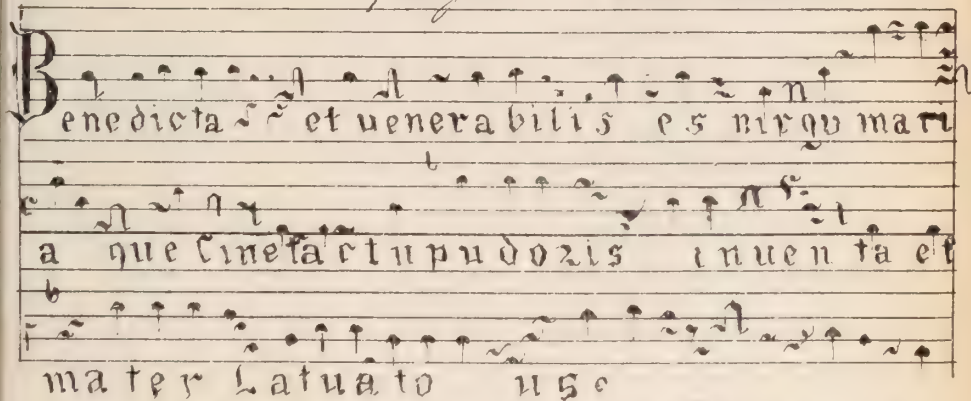 Benedicta et uenerabilis es uirgo mari
a que sine tactu pudoris inuenta et
mater Latuato use